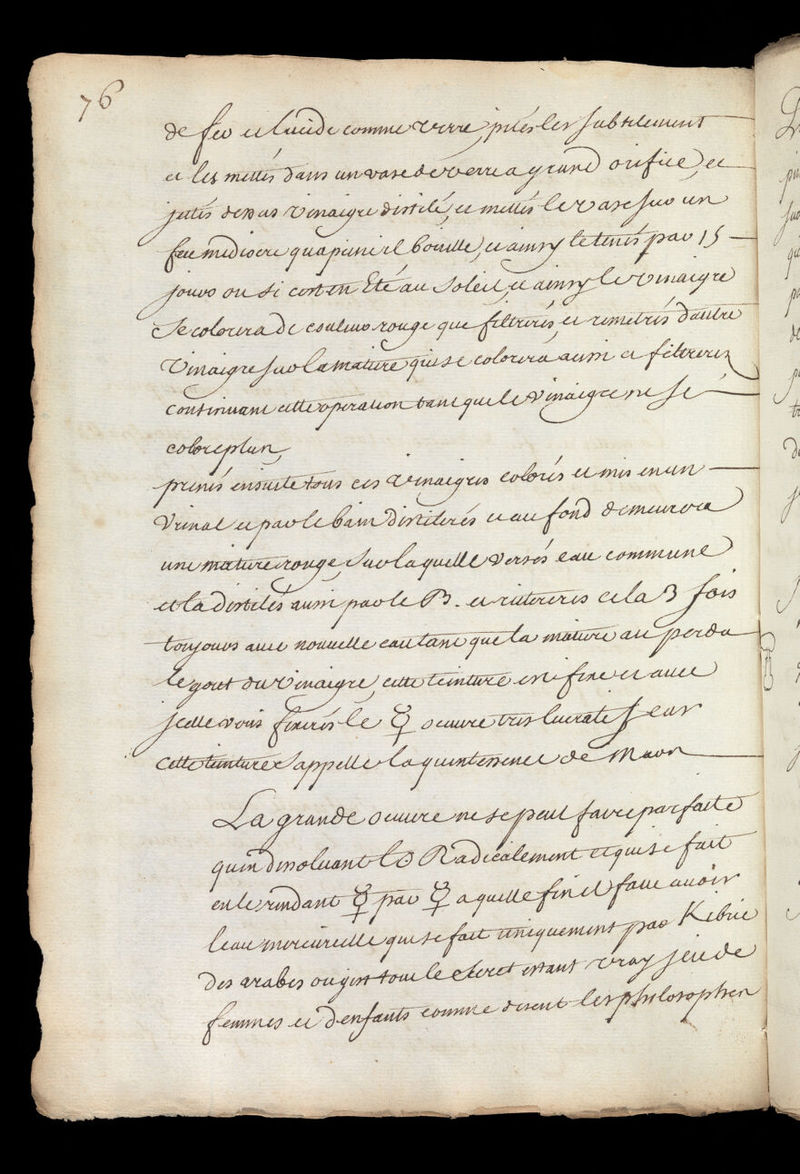 76
de feu et lucide comme verre, pilés les subtilement
et les mettés dans un vase de verre a grand orifice, et
jettés dessus vinaigre distilé, et mettés le vase sur un
feu mediocre qua peine il bouille, et ainsy le tenés par 15
jours ou si cest en Eté au soleil, et ainsy le vinaigre
se colorera de couleur rouge que filtrerés, et remetrés dautre
vinaigre sur la matiere qui se colorera aussi et filtrerez
continuant cette operation tant que le vinaigre ne se
colore plus,
prenés ensuite tous ces vinaigres colorés et mis en un
vrinal et par le bain distilerés et au fond demeurera
une matiere rouge, sur laquelle versés eau commune
et la distilés aussi par le B. et reitereres cela 3 fois
toujours avec nouvelle eau tant que la matiere ait perdu
le gout du vinaigre, cette teinture est fixe et avec
jcelle vous fixerés le ☿ oeuvre tres lucratif car
cette teinture s'appelle la quintessence de
La grande oeuvre ne se peut faire parfaite
quen dissoluant l☉ Radicalement et qui se fait
en le rendant ☿ par ☿ a quelle fin il faut avoir
leau mercurielle qui se fait uniquement par Kibrie
des arabes ou gist tout le secret estant vray jeu de
femmes et denfants comme disent les philosophes